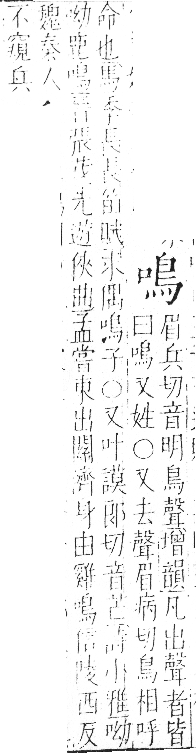 鳴
眉兵切音明鳥聲增韻凡出聲者皆
曰鳴又姓○又去聲眉病切鳥相呼
命也馬季長長笛賦求偶鳴子○又叶謨郎切音芒詩小雅呦
呦鹿鳴晉張茂先遊俠曲孟嘗東出關濟身由雞鳴信陵西反
魏秦人
不窺兵